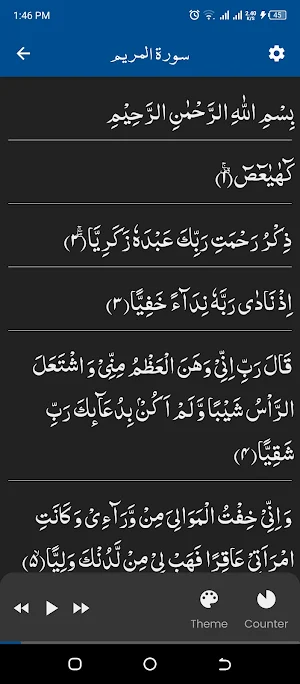 1:46 PM 2.40 K/s 45
سورة المريم
بِسْمِ اللّٰهِ الرَّحْمٰنِ الرَّحِيْمِ
كٓهٰيٰعٓصٓ ۚ‏(۱)
ذِكْرُ رَحْمَتِ رَبِّكَ عَبْدَهٗ زَكَرِيَّا ۚ‏(۲)
اِذْ نَادٰى رَبَّهٗ نِدَآءً خَفِيًّا(۳)
قَالَ رَبِّ اِنِّىْ وَهَنَ الْعَظْمُ مِنِّىْ وَ اشْتَعَلَ
الرَّاْسُ شَيْبًا وَّ لَمْ اَكُنْۢ بِدُعَآىِٕكَ رَبِّ
شَقِيًّا(۴)
وَ اِنِّىْ خِفْتُ الْمَوَالِىَ مِنْ وَّرَآءِىْ وَ كَانَتِ
امْرَاَتِىْ عَاقِرًا فَهَبْ لِىْ مِنْ لَّدُنْكَ وَلِيًّا ۙ‏(۵)
Theme Counter